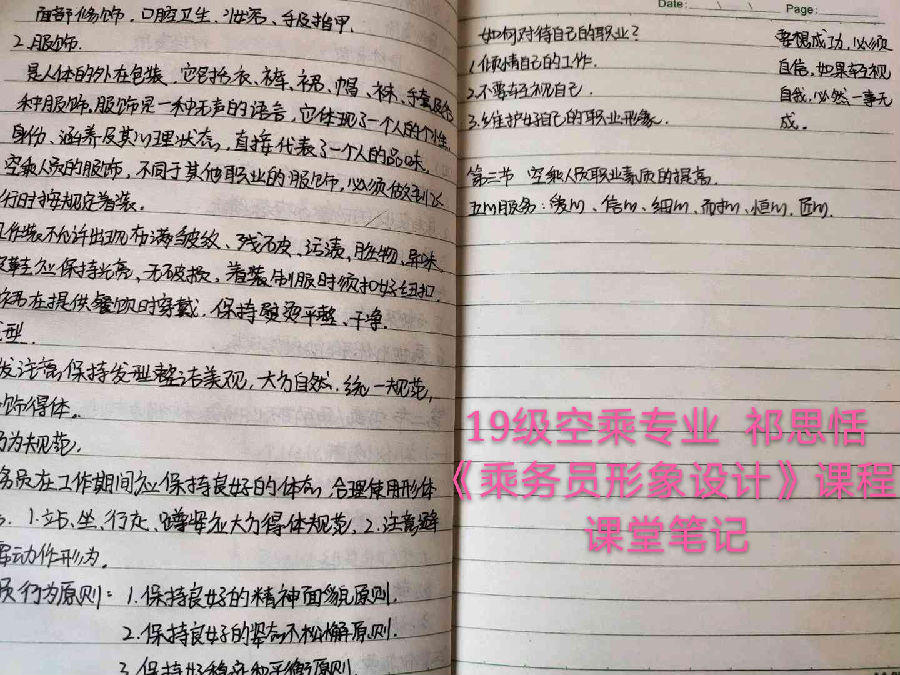 面部修饰、口腔卫生、妆容、手及指甲.
2.服饰.
是人体的外在包装,它包括衣、裤、裙、帽、袜、手套及各
种服饰,服饰是一种无声的语言,它体现了一个人的个性、
身份、涵养及其心理状态,直接代表了一个人的品味.
空乘人员的服饰,不同于其他职业的服饰,必须做到飞
行时按规定着装.
工作装不允许出现布满皱纹、残破、污渍、脏物、异味.
皮鞋应保持光亮,无破损,着装制服时须扣好纽扣.
围裙在提供餐饮时穿戴,保持熨烫平整、干净.
发型.
发注意保持发型整洁美观,大方自然,统一规范,
饰得体.
行为规范.
务员在工作期间应保持良好的体态,合理使用形体
1.站、坐、行走、蹲姿应大方得体规范,2.注意避
动作形为.
行为原则: 1.保持良好的精神面貌原则.
2.保持良好的姿态不松懈原则.
3.保持好稳定和平衡原则.
Date: Page:
如何对待自己的职业?
1.倾情自己的工作.
2.不要轻视自己.
3.维护好自己的职业形象.
要想成功,必须
自信,如果轻视
自我,必然一事无
成.
第三节 空乘人员职业素质的提高.
五心服务:爱心、信心、细心、耐心、恒心、匠心.
19级空乘专业 祁思恬
《乘务员形象设计》课程
课堂笔记